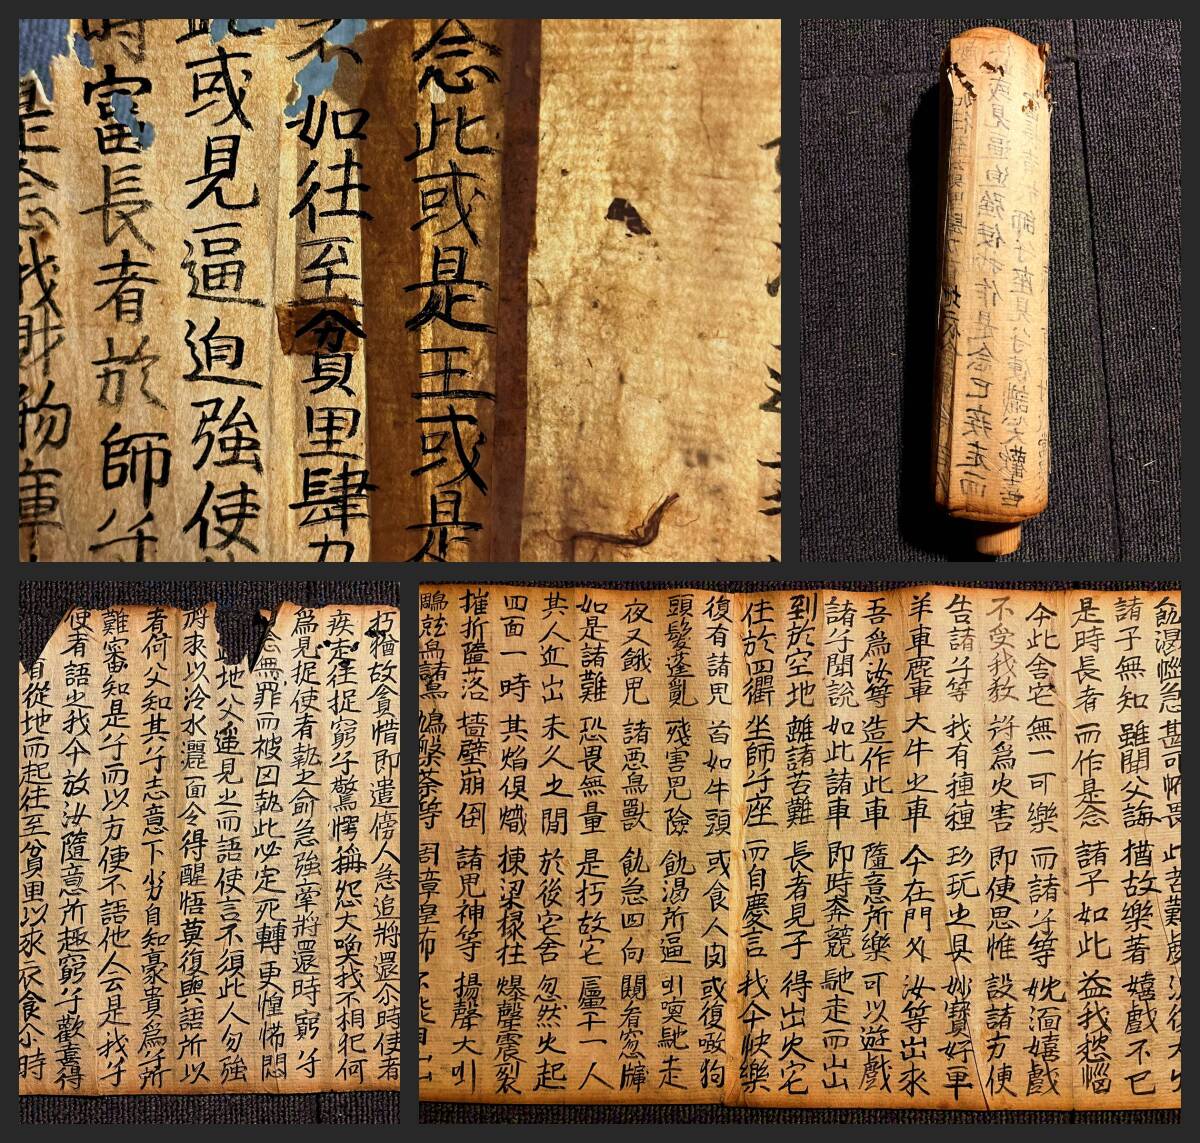 念此或是王或是
不如往至貧里肆力
此或見逼迫強使
時富長者於師子
是念我財物庫
師子座見子便識心大歡喜
或見逼迫強使我作是念已疾走而
朽猶故貪惜即遣傍人急追將還尒時使者
疾走往捉窮子驚愕稱怨大喚我不相犯何
為見捉使者執之俞急強牽將還時窮子
念無罪而被囚執此必定死轉更惶怖悶
地父遙見之而語使言不須此人勿強
將來以冷水灑面令得醒悟莫復與語所以
者何父知其子志意下劣自知豪貴為子所
難審知是子而以方便不語他人云是我子
使者語之我今放汝隨意所趣窮子歡喜得
有從地而起往至貧里以求衣食尒時
飢渴惱急 甚可怖畏 此苦難處 況復大火
諸子無知 雖聞父誨 猶故樂著 嬉戲不已
是時長者 而作是念 諸子如此 益我愁惱
今此舍宅 無一可樂 而諸子等 妉湎嬉戲
不受我教 將為火害 即便思惟 設諸方便
告諸子等 我有種種 珍玩之具 妙寶好車
羊車鹿車 大牛之車 今在門外 汝等出來
吾為汝等 造作此車 隨意所樂 可以遊戲
諸子聞說 如此諸車 即時奔競 馳走而出
到於空地 離諸苦難 長者見子 得出火宅
住於四衢 坐師子座 而自慶言 我今快樂
復有諸鬼 首如牛頭 或食人肉 或復噉狗
頭髮蓬亂 殘害兇險 飢渴所逼 叫喚馳走
夜叉餓鬼 諸惡鳥獸 飢急四向 闚看窓牖
如是諸難 恐畏無量 是朽故宅 屬于一人
其人近出 未久之間 於後宅舍 忽然火起
四面一時 其焰俱熾 棟梁椽柱 爆聲震裂
摧折墮落 墻壁崩倒 諸鬼神等 揚聲大叫
鵰鷲諸鳥 鳩槃荼等 周章惶怖 不能自出